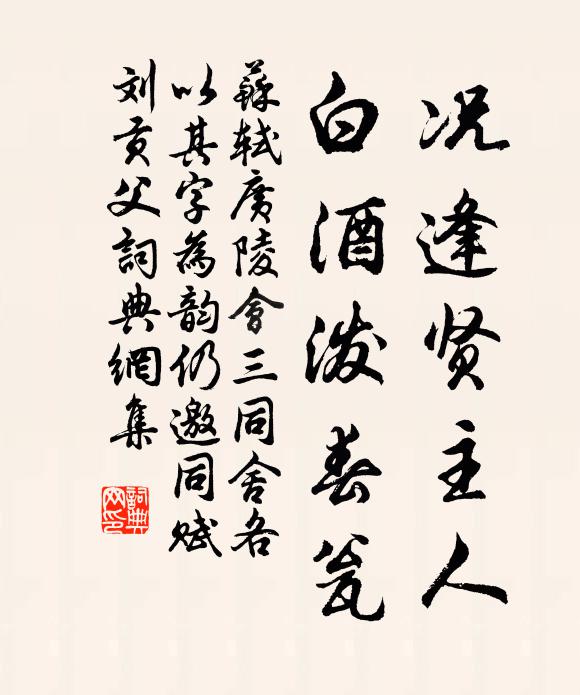 况逢贤主人
白酒泼春瓮
蘇軾廣陵會三同舍各
以其字為韵仍邀同賦
刘贡父詞典網集
詞典网印